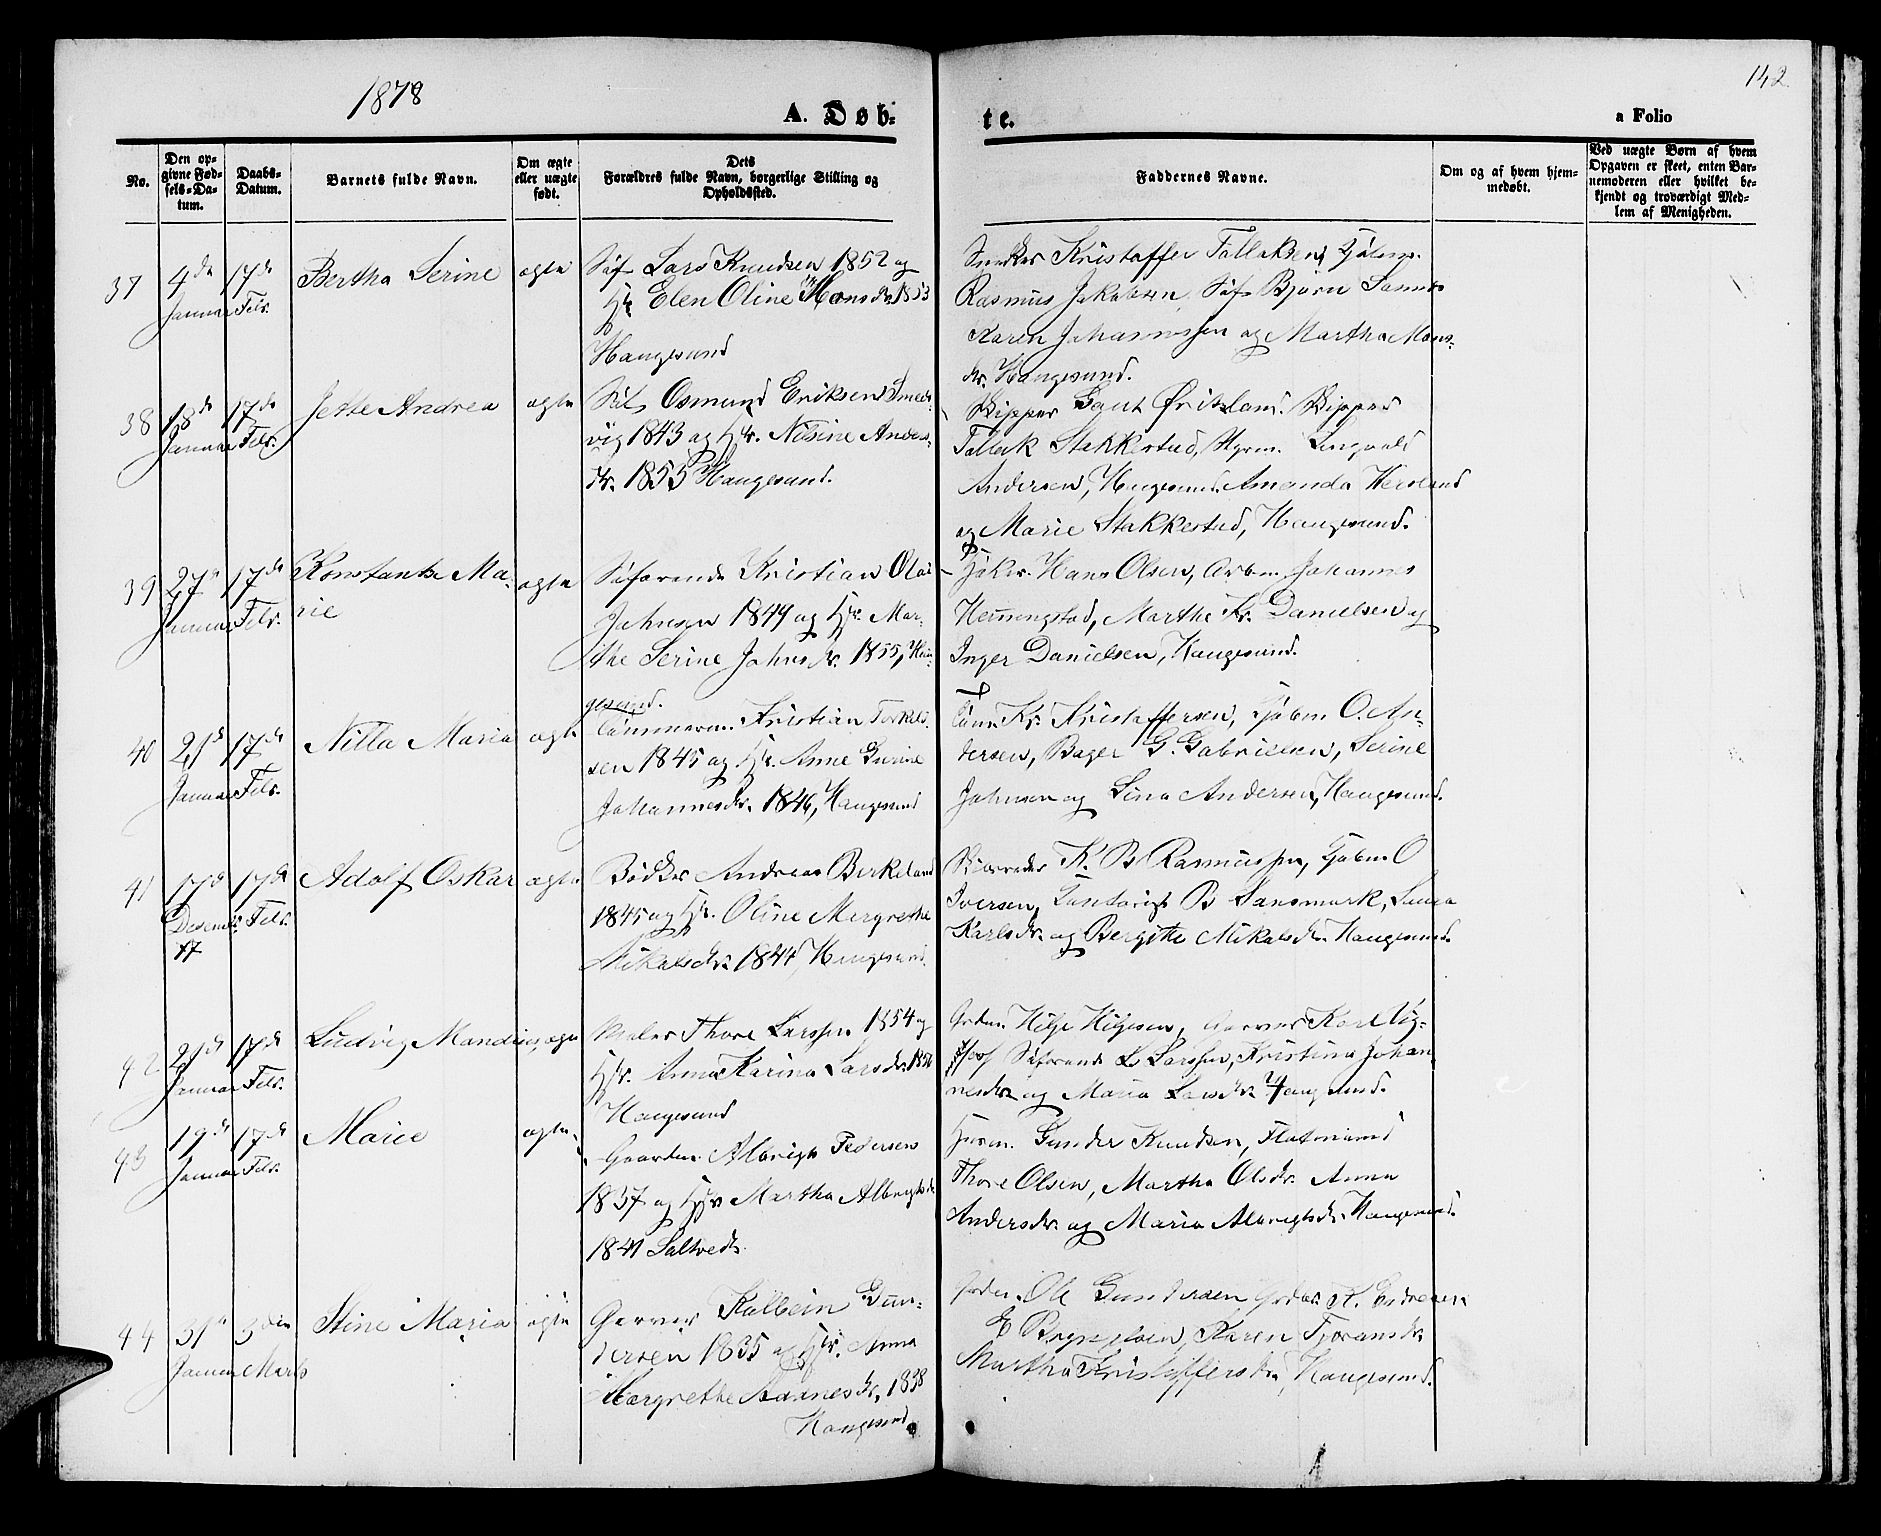 1878
142
A. Døb=
te.
a Folio
No.
Den op=
givne Fød=
sels=Da=
tum.
Daabs=
Datum.
Barnets fulde Navn.
Om ægte
eller uægte
født.
Dets
Forældres fulde Navn, borgerlige Stilling og
Opholdssted.
Faddernes Navne.
Om og af hvem hjem=
medøbt.
Ved uægte Børn af hvem
Opgaven er skeet, enten Bar=
nemoderen eller hvilket be=
kjendt og troværdigt Med=
lem af Menigheden.
37 4de Januar 17de Febr. Bertha Serine ægte
Søf. Lars Knudsen 1852 og
Hst. Elen Oline Monsdr. 1853
Haugesund
Snedker Kristoffer
Rasmus Jakobsen, Søf. Bjørn
Karen Johannessen og Martha Mons=
dr. Haugesund.
38 18de Januar 17de Febr. Jette Andrea ægte
Osmund Eriksen Smed=
vig 1843 og Hst. Nilsine Anders=
dr. 1855 Haugesund.
Skipper Gaut Skipper
Stakkestad, Styrm.
Andersen, Haugesund. Amanda
og Marie Stakkestad, Haugesund.
39 27de Januar 17de Febr. Konstantse Ma=
rie ægte
Søfarende Kristian Olai
Johnsen 1849 og Hst. Mar=
the Serine Johnsdr. 1855, Hau=
gesund.
Hans Olsen, Arbm. Johannes
Hemmingstad, Marthe Kr. Danielsen og
Inger Danielsen, Haugesund.
40 21de Januar 17de Febr. Nilla Maria ægte
Tømmerm. Kristian Torkels=
sen 1845 og Hst. Anne Gurine
Johannesdr. 1846, Haugesund
Tøm. Kr. Kristoffersen, O. An=
dersen, Bager G. Gabrielsen, Serine
Johnsen og Lina Andersen, Haugesund.
41 17de Desembr. 77 17de Febr. Adolf Oskar ægte
Bødker Andreas Birkeland
1845 og Hst. Oline Margrethe
Mikalsdr. 1844, Haugesund.
K. B. Rasmussen, O
Iversen, B. Sandsmark,
Karlsdr. og Bergitte Mikalsdr. Haugesund.
42 21de Januar 17de Febr. Ludvig Mandius ægte
Maler Thore Larssen 1854 og
Hst. Anna Karina Larsdr.
Haugesund
Helje Heljesen, Garver Karl
Søfarende L. Larssen, Kristina Johan=
nesdr. og Maria Larsdr. Haugesund.
43 19de Januar 17de Febr. Marie ægte
Gaardm. Albrigt Pedersen
1837 og Hst. Martha Albrigtsdr.
1841 Saltvedt.
Husm. Gunder Knudsen,
Thore Olsen, Martha Olsdr. Anna
Andersdr. og Maria Albrigtsdr. Haugesund.
44 31te Januar 3die Marts Stine Maria ægte
Garver Kolbein Gun=
dersen 1835 og Hst. Anna
Margrethe 1838
Haugesund.
Ole Gundersen
Martha Kristoffersdr., Haugesund.